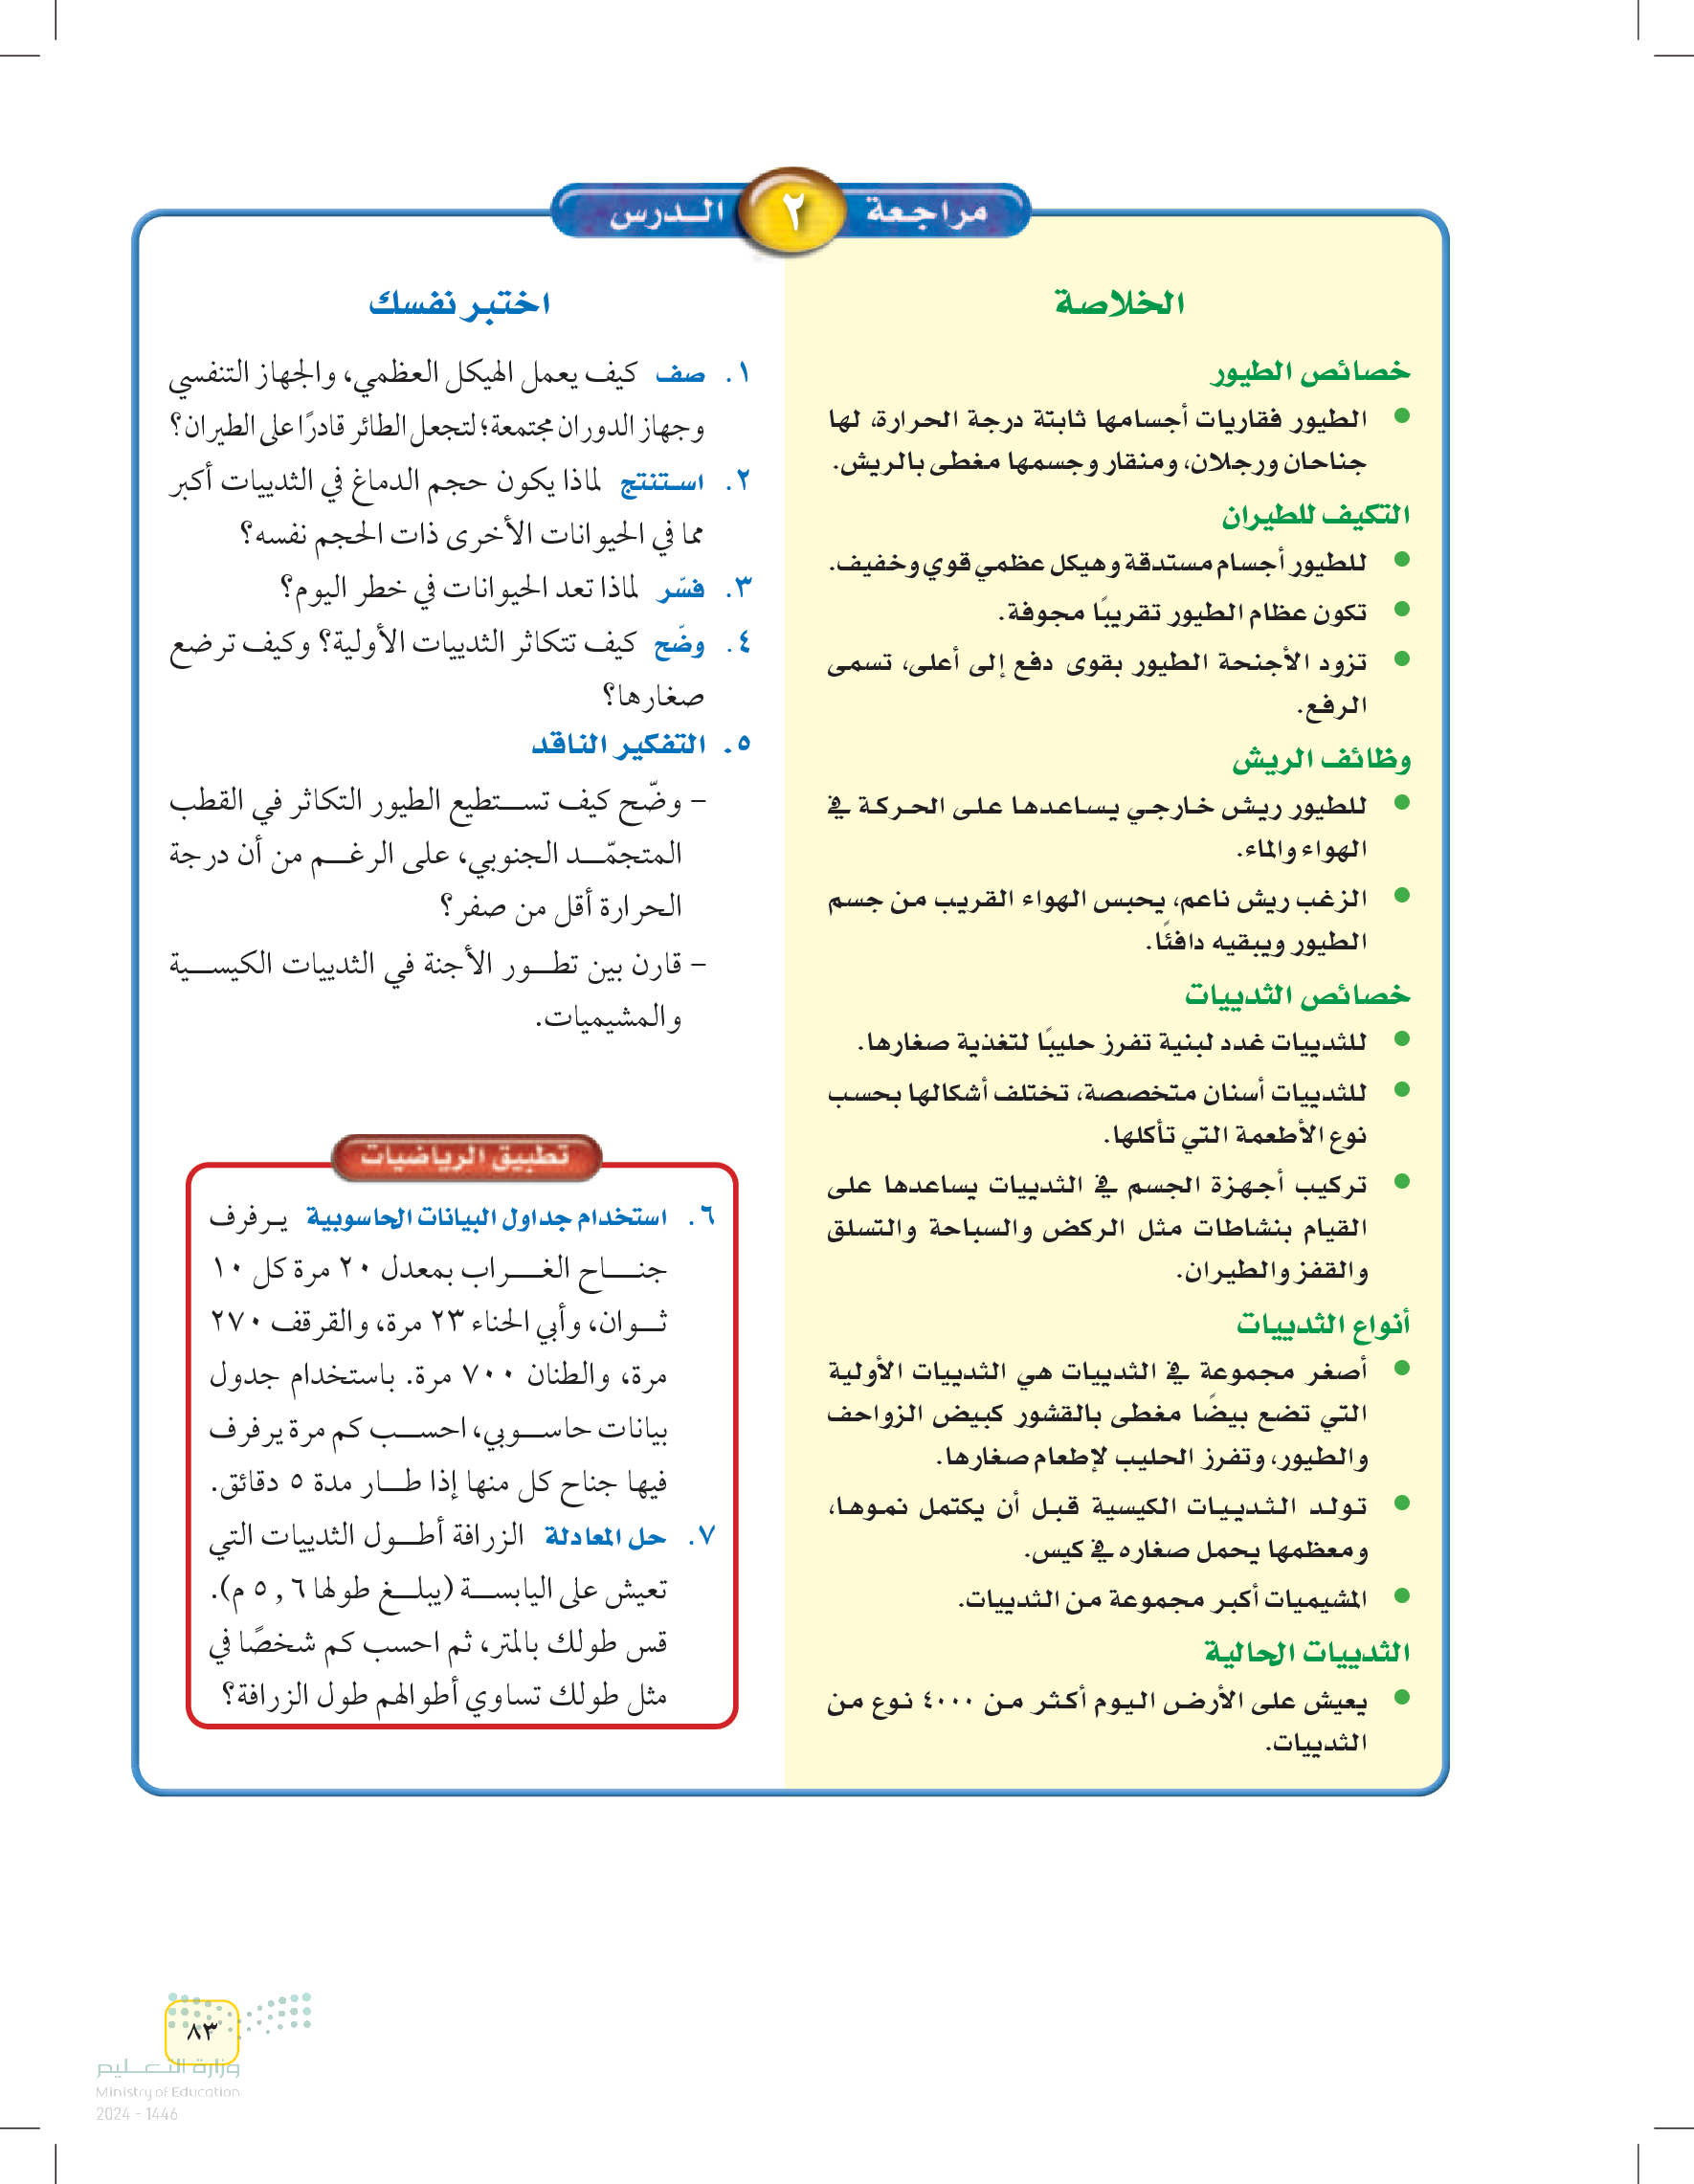 مراجعة ٢ الدرس
الخلاصة
خصائص الطيور
• الطيور فقاريات أجسامها ثابتة درجة الحرارة، لها
جناحان ورجلان، ومنقار وجسمها مغطى بالريش.
التكيف للطيران
• للطيور أجسام مستدقة وهيكل عظمي قوي وخفيف.
• تكون عظام الطيور تقريبًا مجوفة.
• تزود الأجنحة الطيور بقوى دفع إلى أعلى، تسمى
الرفع.
وظائف الريش
• للطيور ريش خارجي يساعدها على الحركة في
الهواء والماء.
• الزغب ريش ناعم، يحبس الهواء القريب من جسم
الطيور ويبقيه دافئًا.
خصائص الثدييات
• للثدييات غدد لبنية تفرز حليبًا لتغذية صغارها.
• للثدييات أسنان متخصصة، تختلف أشكالها بحسب
نوع الأطعمة التي تأكلها.
• تركيب أجهزة الجسم في الثدييات يساعدها على
القيام بنشاطات مثل الركض والسباحة والتسلق
والقفز والطيران.
أنواع الثدييات
• أصغر مجموعة في الثدييات هي الثدييات الأولية
التي تضع بيضًا مغطى بالقشور كبيض الزواحف
والطيور، وتفرز الحليب لإطعام صغارها.
• تولد الثدييات الكيسية قبل أن يكتمل نموها،
ومعظمها يحمل صغاره في كيس.
• المشيميات أكبر مجموعة من الثدييات.
الثدييات الحالية
• يعيش على الأرض اليوم أكثر من ٤٠٠٠ نوع من
الثدييات.
اختبر نفسك
١. صف كيف يعمل الهيكل العظمي، والجهاز التنفسي
وجهاز الدوران مجتمعة؛ لتجعل الطائر قادرًا على الطيران؟
٢. استنتج لماذا يكون حجم الدماغ في الثدييات أكبر
مما في الحيوانات الأخرى ذات الحجم نفسه؟
٣. فسّر لماذا تعد الحيوانات في خطر اليوم؟
٤. وضّح كيف تتكاثر الثدييات الأولية؟ وكيف ترضع
صغارها؟
٥. التفكير الناقد
– وضّح كيف تستطيع الطيور التكاثر في القطب
المتجمّد الجنوبي، على الرغم من أن درجة
الحرارة أقل من صفر؟
– قارن بين تطور الأجنة في الثدييات الكيسية
والمشيميات.
تطبيق الرياضيات
٦. استخدام جداول البيانات الحاسوبية يرفرف
جناح الغراب بمعدل ٢٠ مرة كل ١٠
ثوان، وأبي الحناء ٢٣ مرة، والقرقف ٢٧٠
مرة، والطنان ٧٠٠ مرة. باستخدام جدول
بيانات حاسوبي، احسب كم مرة يرفرف
فيها جناح كل منها إذا طار مدة ٥ دقائق.
٧. حل المعادلة الزرافة أطول الثدييات التي
تعيش على اليابسة (يبلغ طولها ٥,٦ م).
قس طولك بالمتر، ثم احسب كم شخصًا في
مثل طولك تساوي أطوالهم طول الزرافة؟
٨٣
وزارة التعليم
Ministry of Education
2024 - 1446